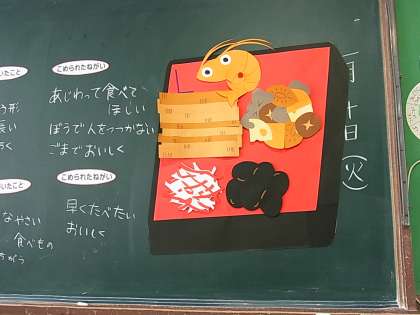 いたこと
う形
長い
こめられたねがい
あじわって食べて
ほしい
ぼうで人をつつかない
ごまでおいしく
いたこと
なやさい
食べもの
こめられたねがい
早くたべたい
おいしく
月十日(火)